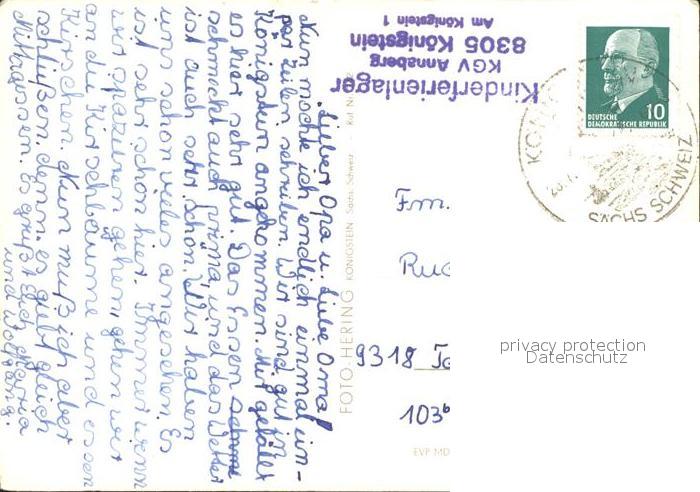 Lieber Opa u. liebe Oma!
Nun möchte ich endlich einmal ein-
par zeilen schreiben. Wir sind gut in
Königstein angekommen. Mir gefällt
es hier sehr gut. Das Essen
schmeckt auch prima, und das Wetter
ist auch sehr schön. Wir haben
uns schon vieles angesehen. Es
ist sehr schön hier. Immer wenn
wir spazieren gehen, gehen wir
an die Kirschbäume und essen
Kirschen. Nun muß ich aber
schließen, denn es giebt gleich
Mittagessen. Es grüßt Euch Maria
und Wolfgang.
FOTO-HERING KÖNIGSTEIN Sächs. Schweiz
EVP MD
Kinderferienlager
KGV Annaberg
8305 Königstein
Am Königstein 1
DEUTSCHE
DEMOKRATISCHE REPUBLIK
10
SÄCHS SCHWEIZ
Fm.
9318
103b
privacy protection
Datenschutz